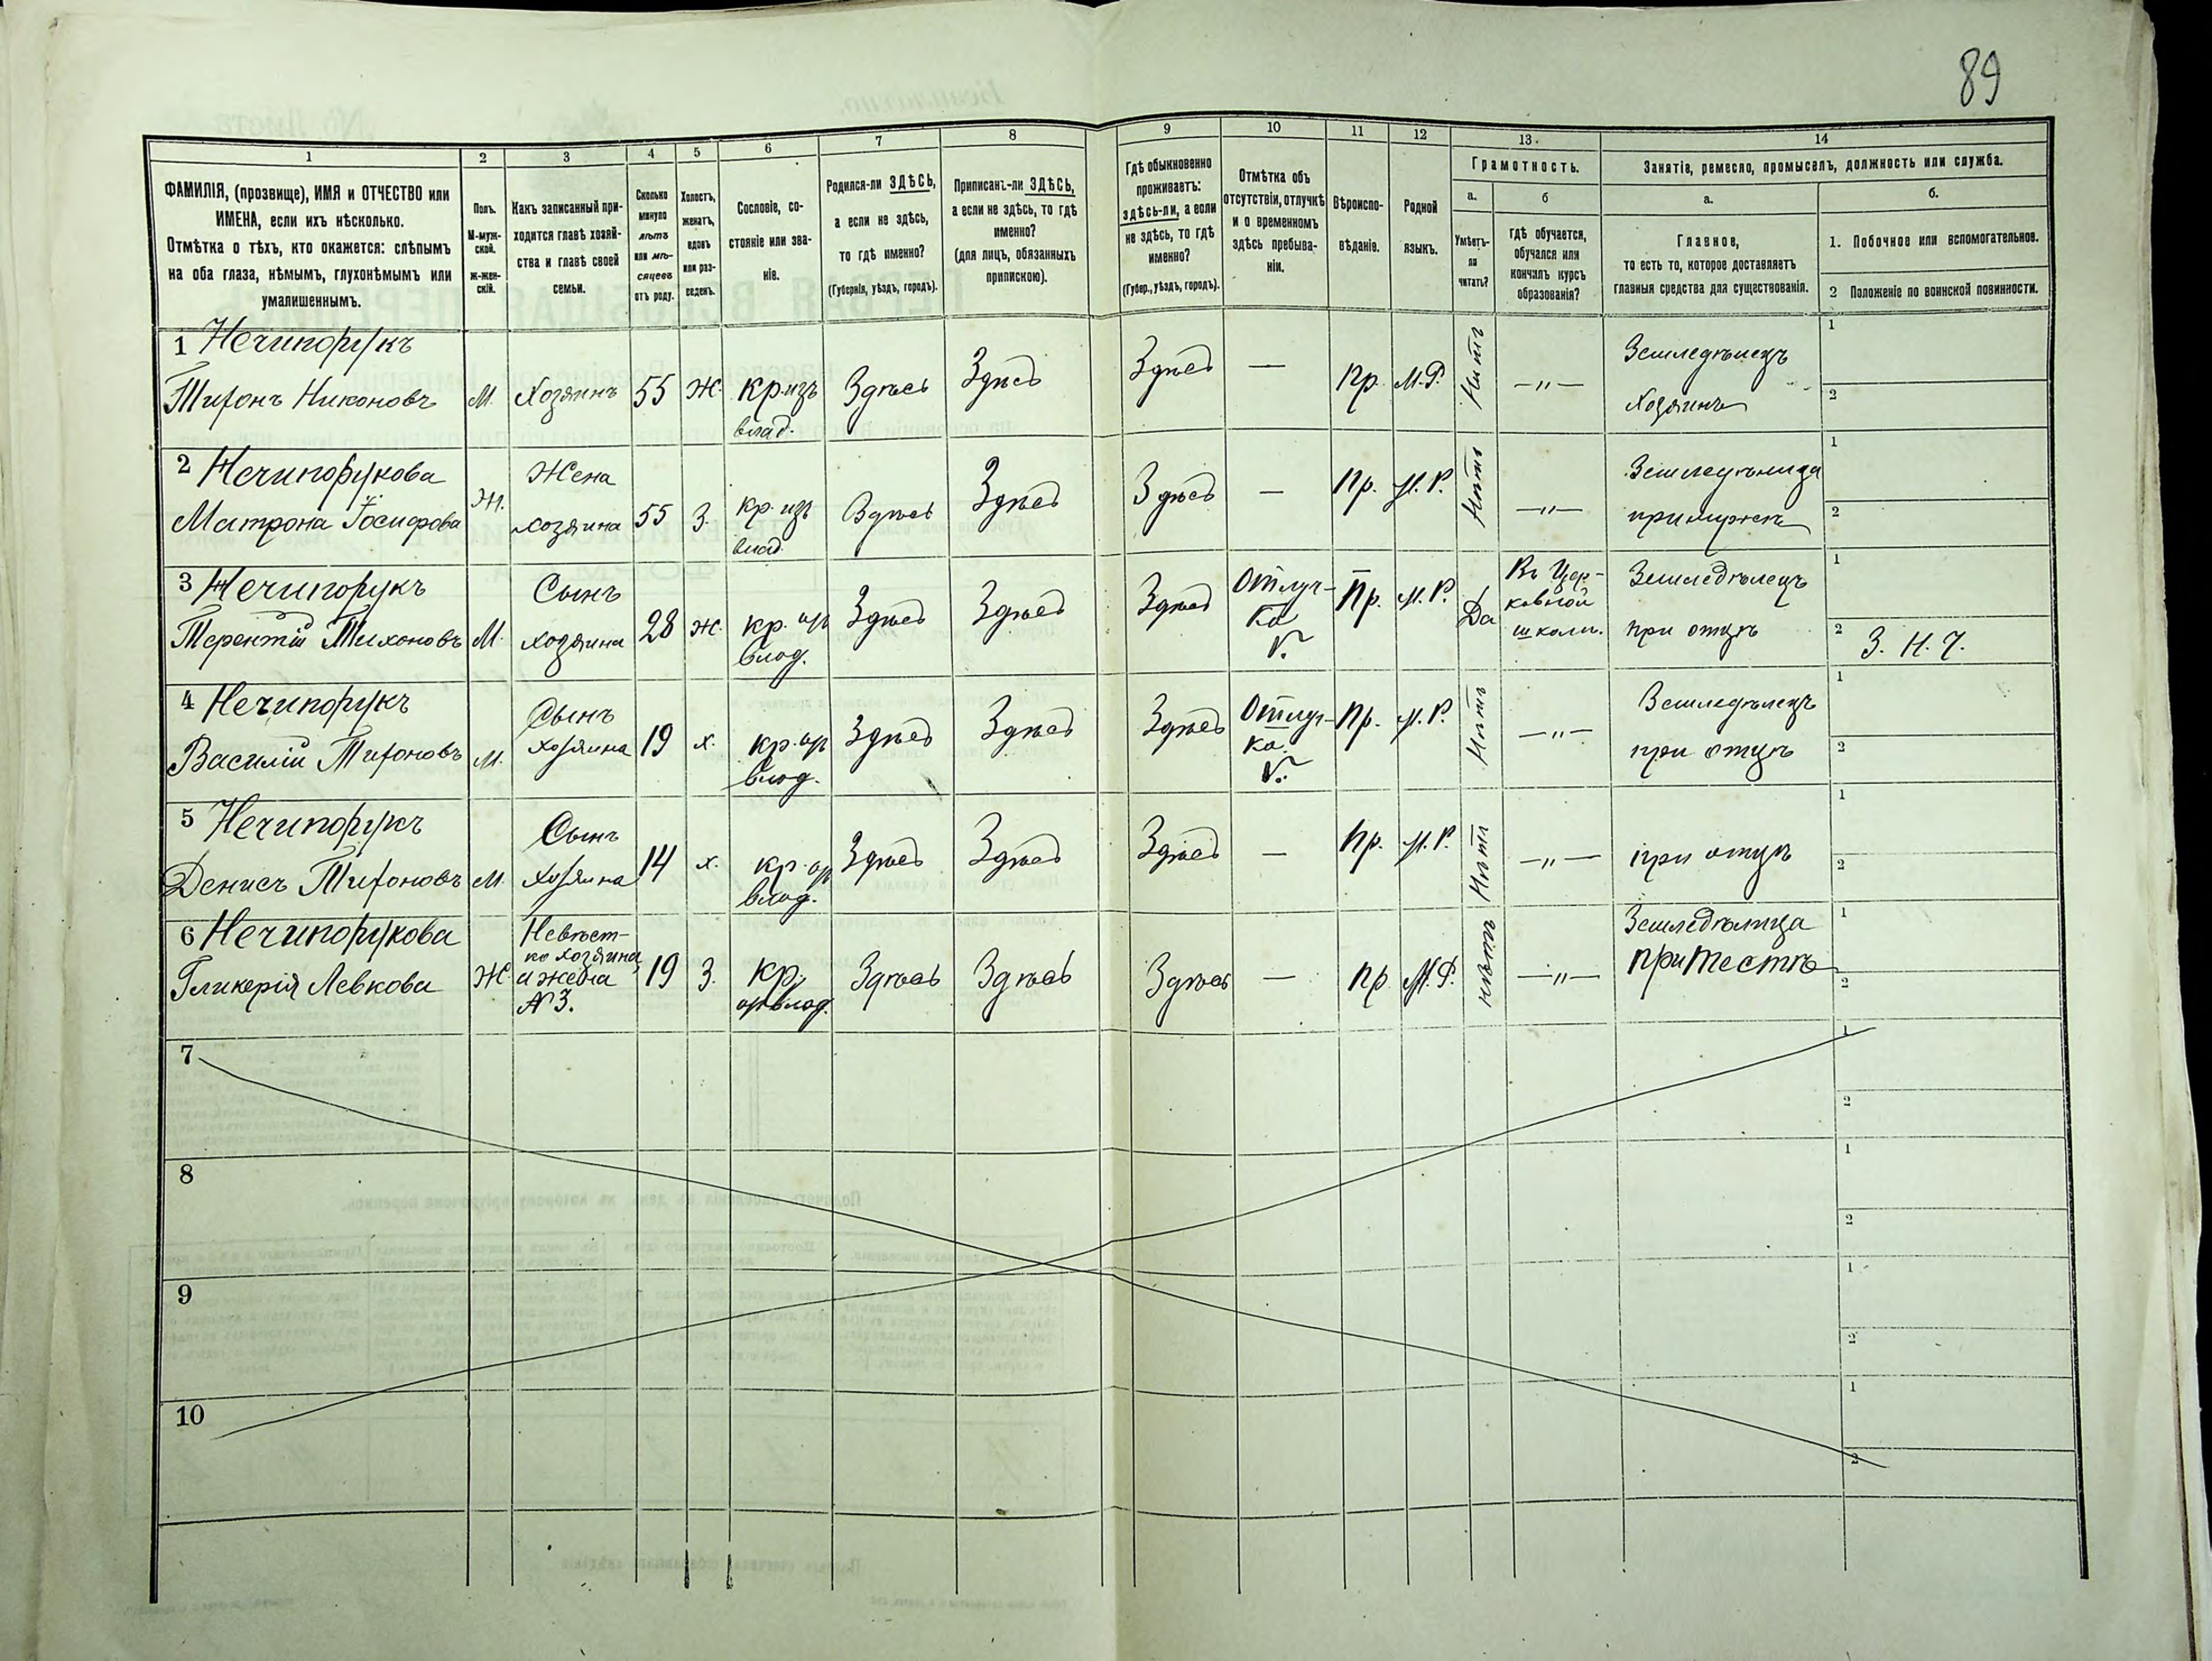 89
1 2 3 4 5 6 7 8 9 10 11 12 13. 14
ФАМИЛІЯ, (прозвище), ИМЯ и ОТЧЕСТВО или
ИМЕНА, если ихъ нѣсколько.
Отмѣтка о тѣхъ, кто окажется: слѣпымъ
на оба глаза, нѣмымъ, глухонѣмымъ или
умалишеннымъ.
Полъ.
М-муж-
ской.
Ж-жен-
скій.
Какъ записанный при-
ходится главѣ хозяй-
ства и главѣ своей
семьи.
Сколько
минуло
лѣтъ
или мѣ-
сяцевъ
отъ роду.
Холостъ,
женатъ,
вдовъ
или раз-
веденъ.
Сословіе, со-
стояніе или зва-
ніе.
Родился-ли ЗДѢСЬ,
а если не здѣсь,
то гдѣ именно?
(Губернія, уѣздъ, городъ).
Приписанъ-ли ЗДѢСЬ,
а если не здѣсь, то гдѣ
именно?
(для лицъ, обязанныхъ
припискою).
Гдѣ обыкновенно
проживаетъ:
здѣсь-ли, а если
не здѣсь, то гдѣ
именно?
(Губер., уѣздъ, городъ).
Отмѣтка объ
отсутствіи, отлучкѣ
и о временномъ
здѣсь пребыва-
ніи.
Вѣроиспо-
вѣданіе.
Родной
языкъ.
Грамотность.
а.
Умѣетъ-
ли
читать?
б
гдѣ обучается,
обучался или
кончилъ курсъ
образованія?
Занятіе, ремесло, промыселъ, должность или служба.
а.
Главное,
то есть то, которое доставляетъ
главныя средства для существованія.
б.
1. Побочное или вспомогательное.
2 Положеніе по воинской повинности.
1 Нечипорукъ
Тихонъ Никоновъ
М.
Хозяинъ
55
Ж.
кр. изъ
влад.
Здѣсь
Здѣсь
Здѣсь
—
Пр.
М.Р.
Нѣтъ
—"—
Земледѣлецъ
Хозяинъ
1
2
2 Нечипорукова
Матрона Іосифова
Ж.
Жена
хозяина
55
З.
кр. изъ
влад.
Здѣсь
Здѣсь
Здѣсь
—
Пр.
М.Р.
Нѣтъ
—"—
Земледѣлица
при мужѣ
1
2
3 Нечипорукъ
Терентій Тихоновъ
М.
Сынъ
хозяина
28
Ж.
кр. изъ
влад.
Здѣсь
Здѣсь
Здѣсь
Отлуч-
ка
V.
Пр.
М.Р.
Да
Въ Цер-
ковной
школѣ.
Земледѣлецъ
при отцѣ
1
2
З. Н. Ч.
4 Нечипорукъ
Василій Тихоновъ
М.
Сынъ
хозяина
19
х.
кр. изъ
влад.
Здѣсь
Здѣсь
Здѣсь
Отлуч-
ка.
V.
Пр.
М.Р.
Нѣтъ
—"—
Земледѣлецъ
при отцѣ
1
2
5 Нечипорукъ
Денисъ Тихоновъ
М.
Сынъ
хозяина
14
х.
кр. изъ
влад.
Здѣсь
Здѣсь
Здѣсь
—
Пр.
М.Р.
Нѣтъ
—"—
при отцѣ
1
2
6 Нечипорукова
Гликерія Левкова
Ж
Невѣст-
ка хозяина
и жена
№ 3.
19
З.
кр.
изъ влад.
Здѣсь
Здѣсь
Здѣсь
—
Пр
М.Р.
нѣтъ
—"—
Земледѣлица
при тестѣ
1
2
7
1
2
8
1
2
9
1
2
10
1
2